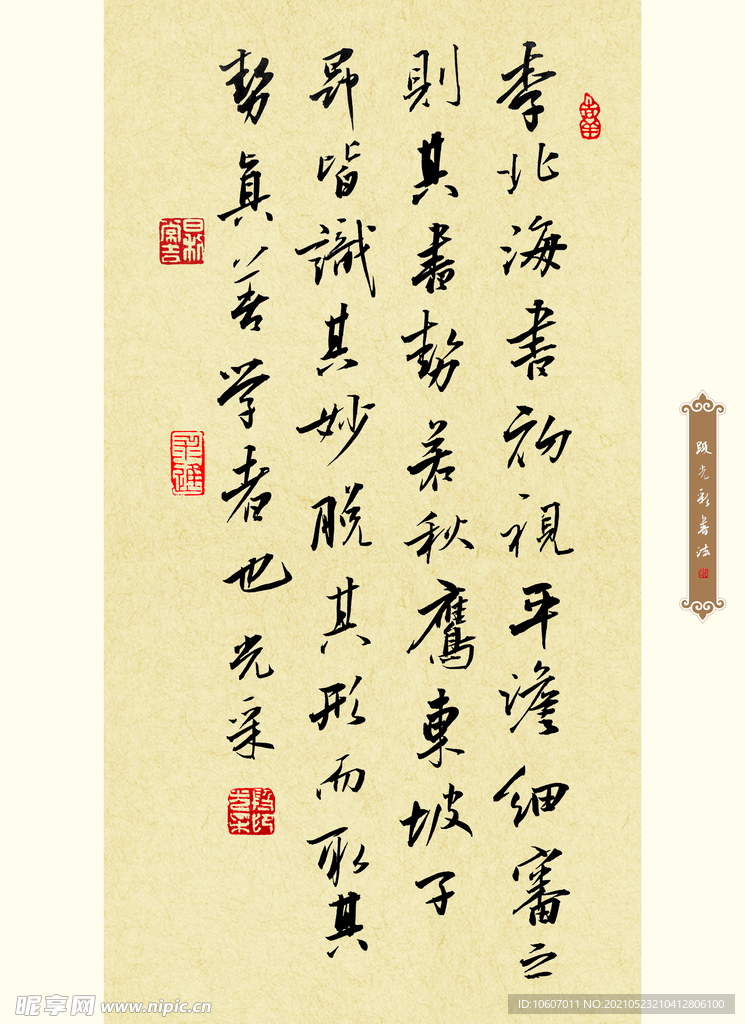 李北海書初視平澹細審之
則其書勢若秋鷹東坡子
昂皆識其妙脫其形而取其
勢真善学者也 光采
昵享网 www.nipic.cn
ID:10607011 NO:20210523210412806100